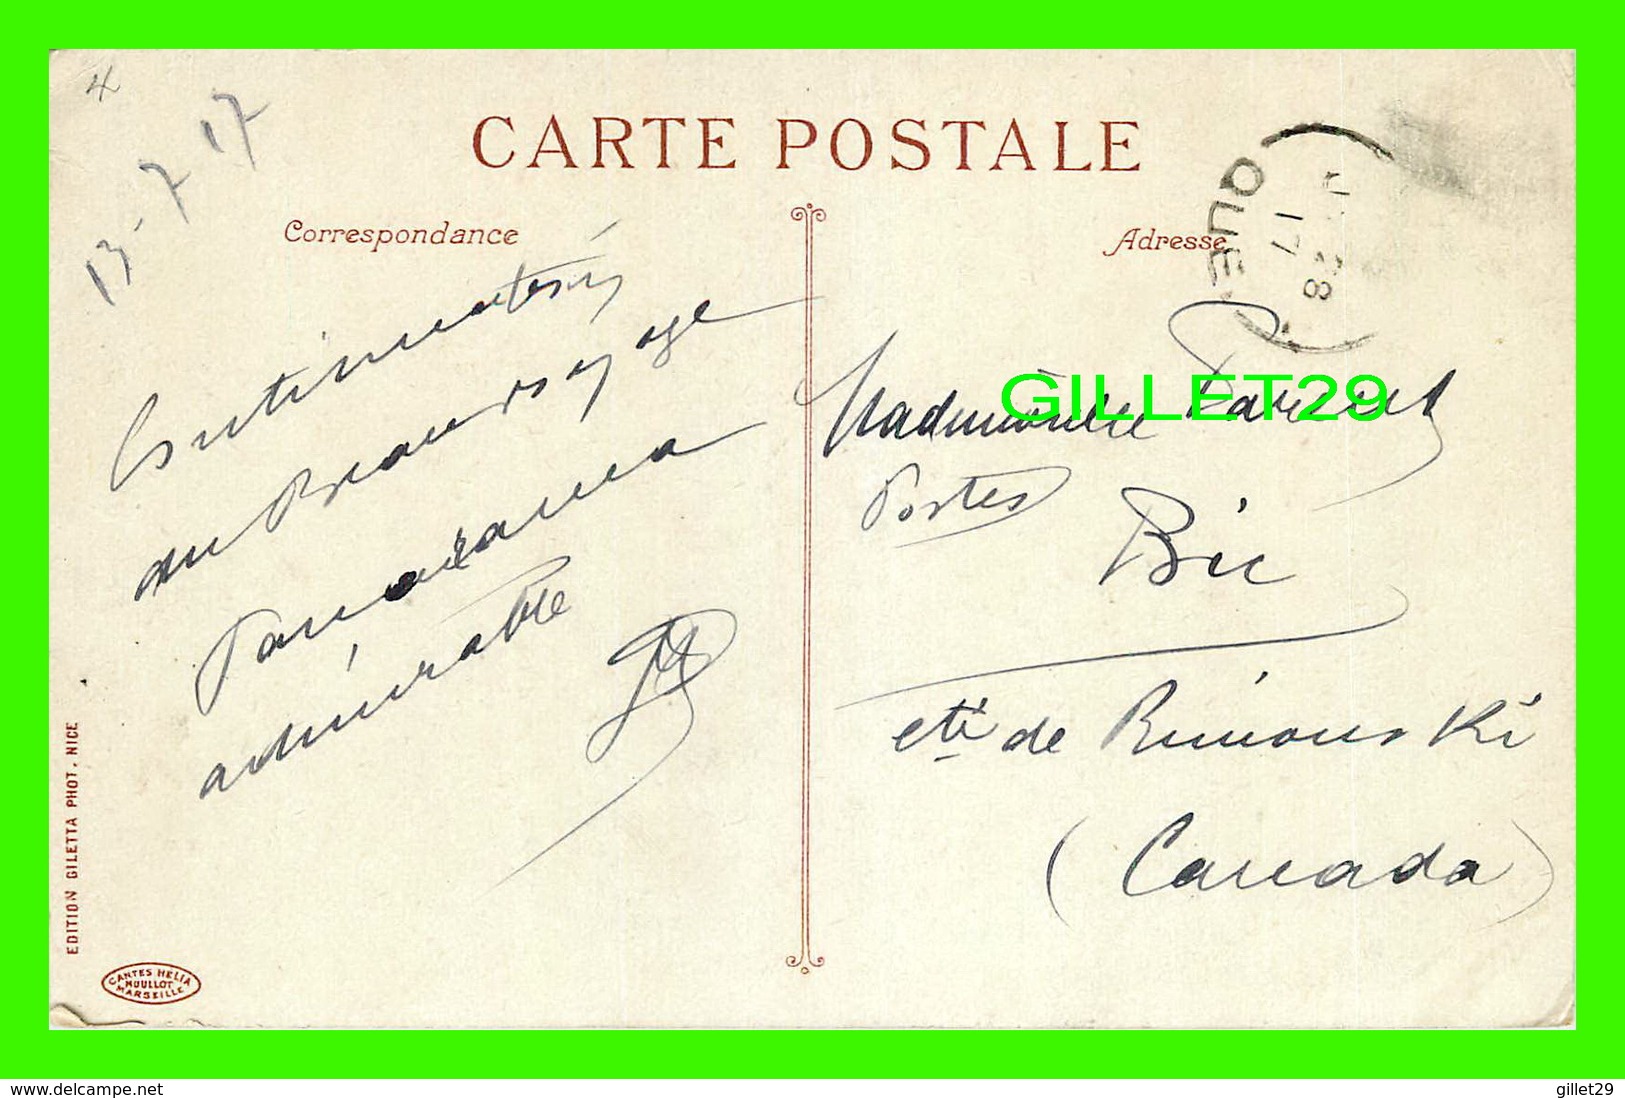 4
13-7 17
CARTE POSTALE
Correspondance
Adresse
QUE
17
28
Continuation
du Beau voyage
Panorama
admirable
GILLET29
Mademoiselle
Postes
Bic
cté de Rimouski
(Canada)
EDITION GILETTA PHOT. NICE
CARTES HELIA
MOULLOT
MARSEILLE
www.delcampe.net
gillet29